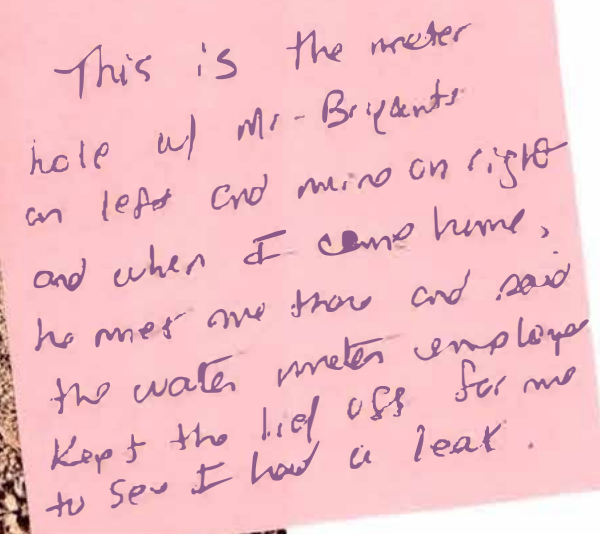 This is the meter
hole w/ Mr. Bryants
on left and mine on right
and when I came home,
he met me thow and said
the water meter employee
Kept the lid off for me
to see I had a leak.